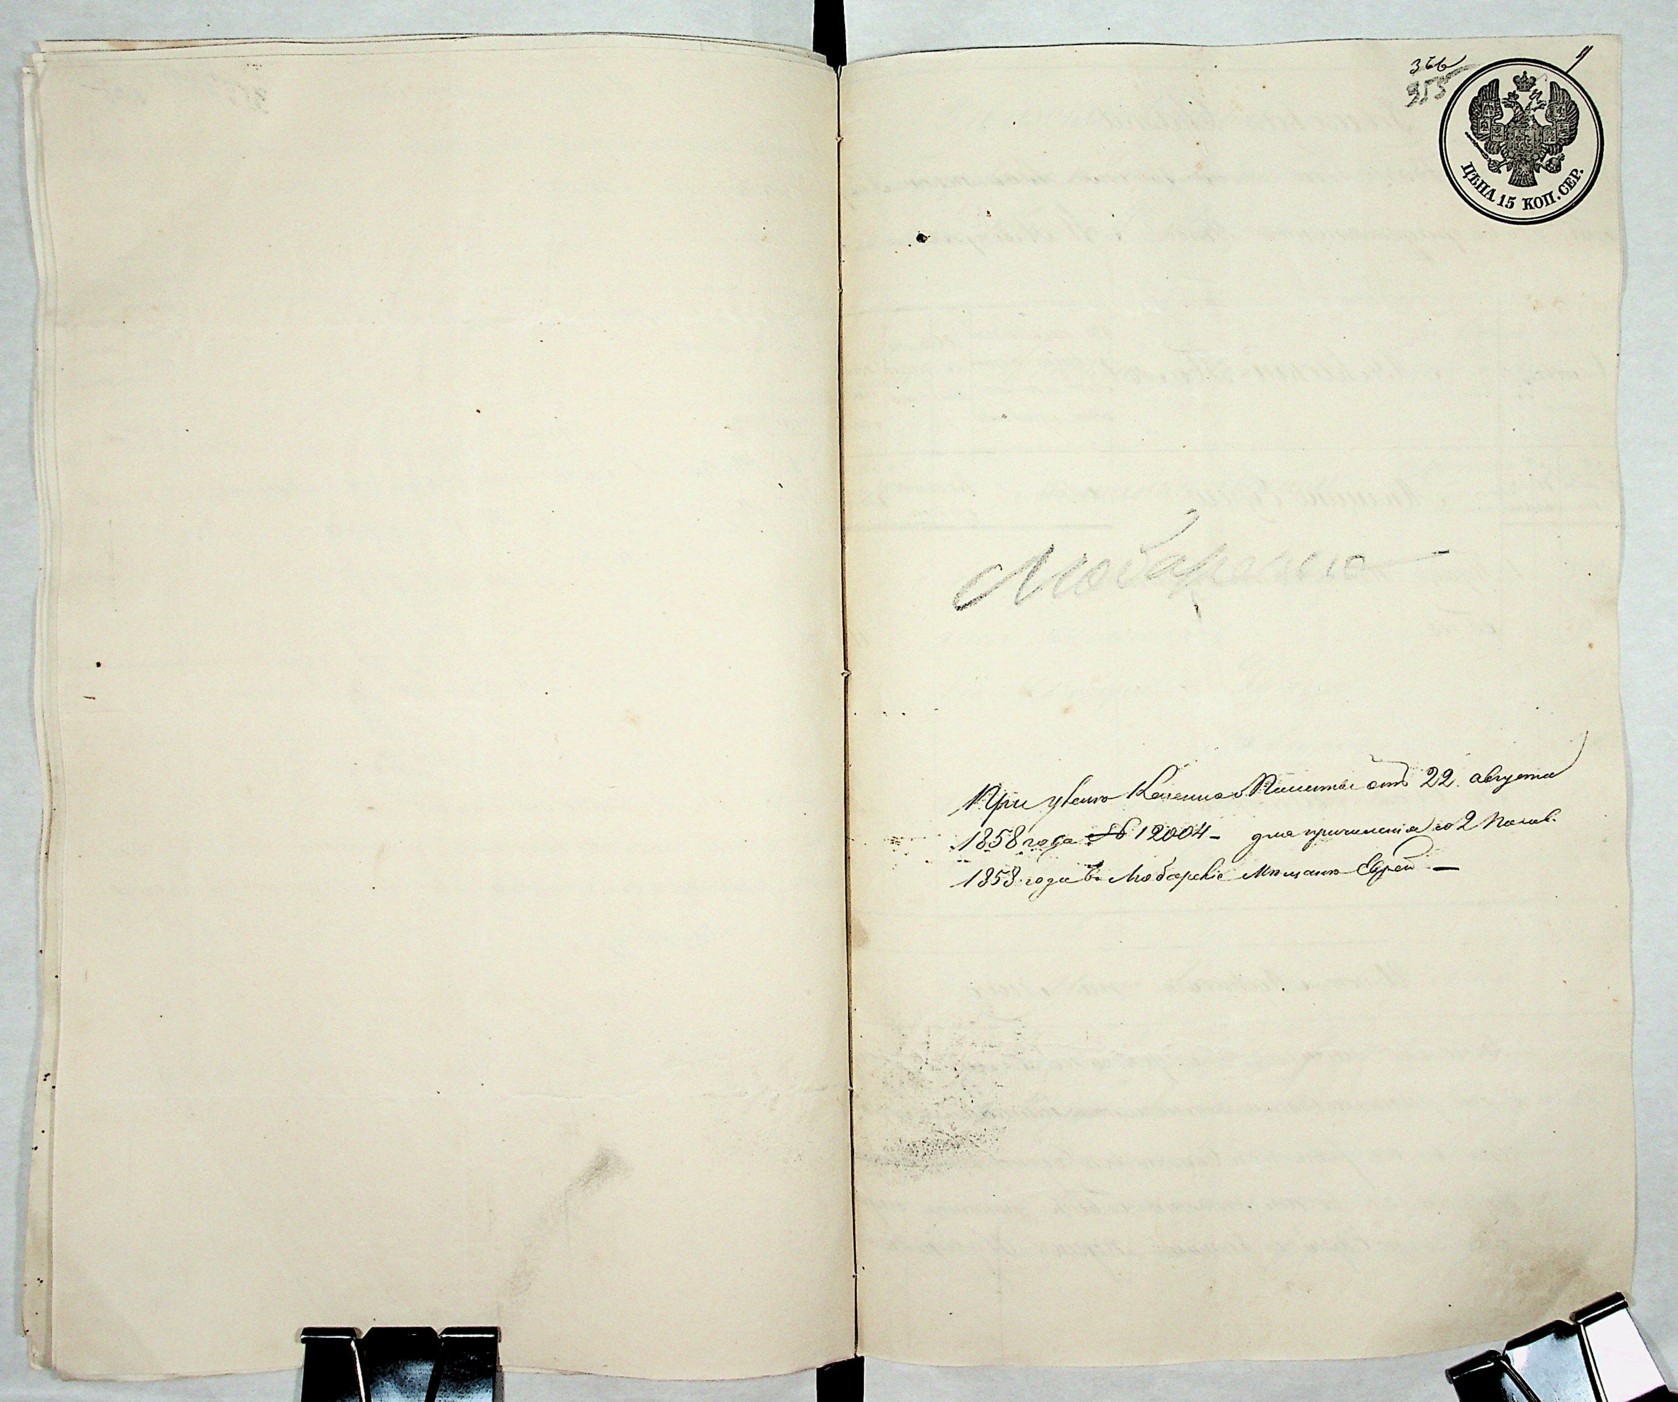 366
355
ЦѢНА 15 КОП. СЕР.
Любарск
При указѣ Казенной Палаты отъ 22. августа
1858 года № 12004 – для причисленія со 2 полов.
1858 года въ Любарскіе мѣщане Еврей –